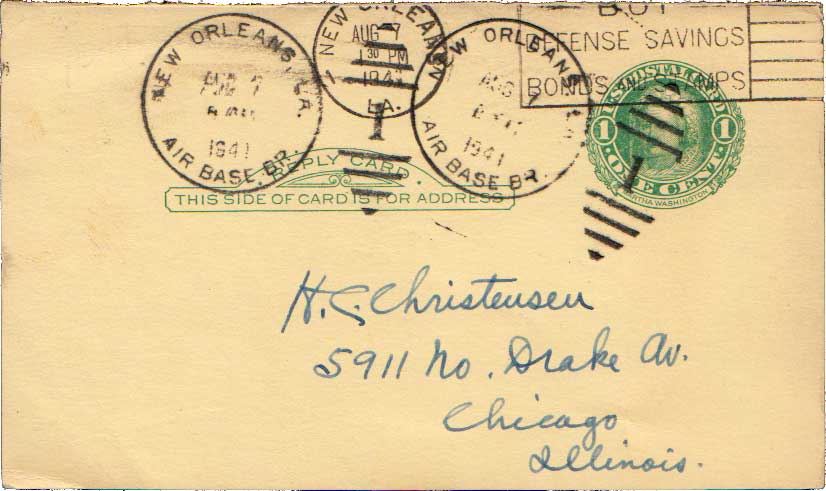 NEW ORLEANS, LA.
1941
AIR BASE BR.
NEW ORLEANS
AUG 7
1 30 PM
LA.
NEW ORLEANS, LA.
AUG
1941
AIR BASE BR.
BUY
DEFENSE SAVINGS
BONDS AND STAMPS
1
1
REPLY CARD
THIS SIDE OF CARD IS FOR ADDRESS
U.S. POSTAL CARD
1 1
ONE CENT
MARTHA WASHINGTON
H. C. Christensen
5911 No. Drake Av.
Chicago
Illinois.